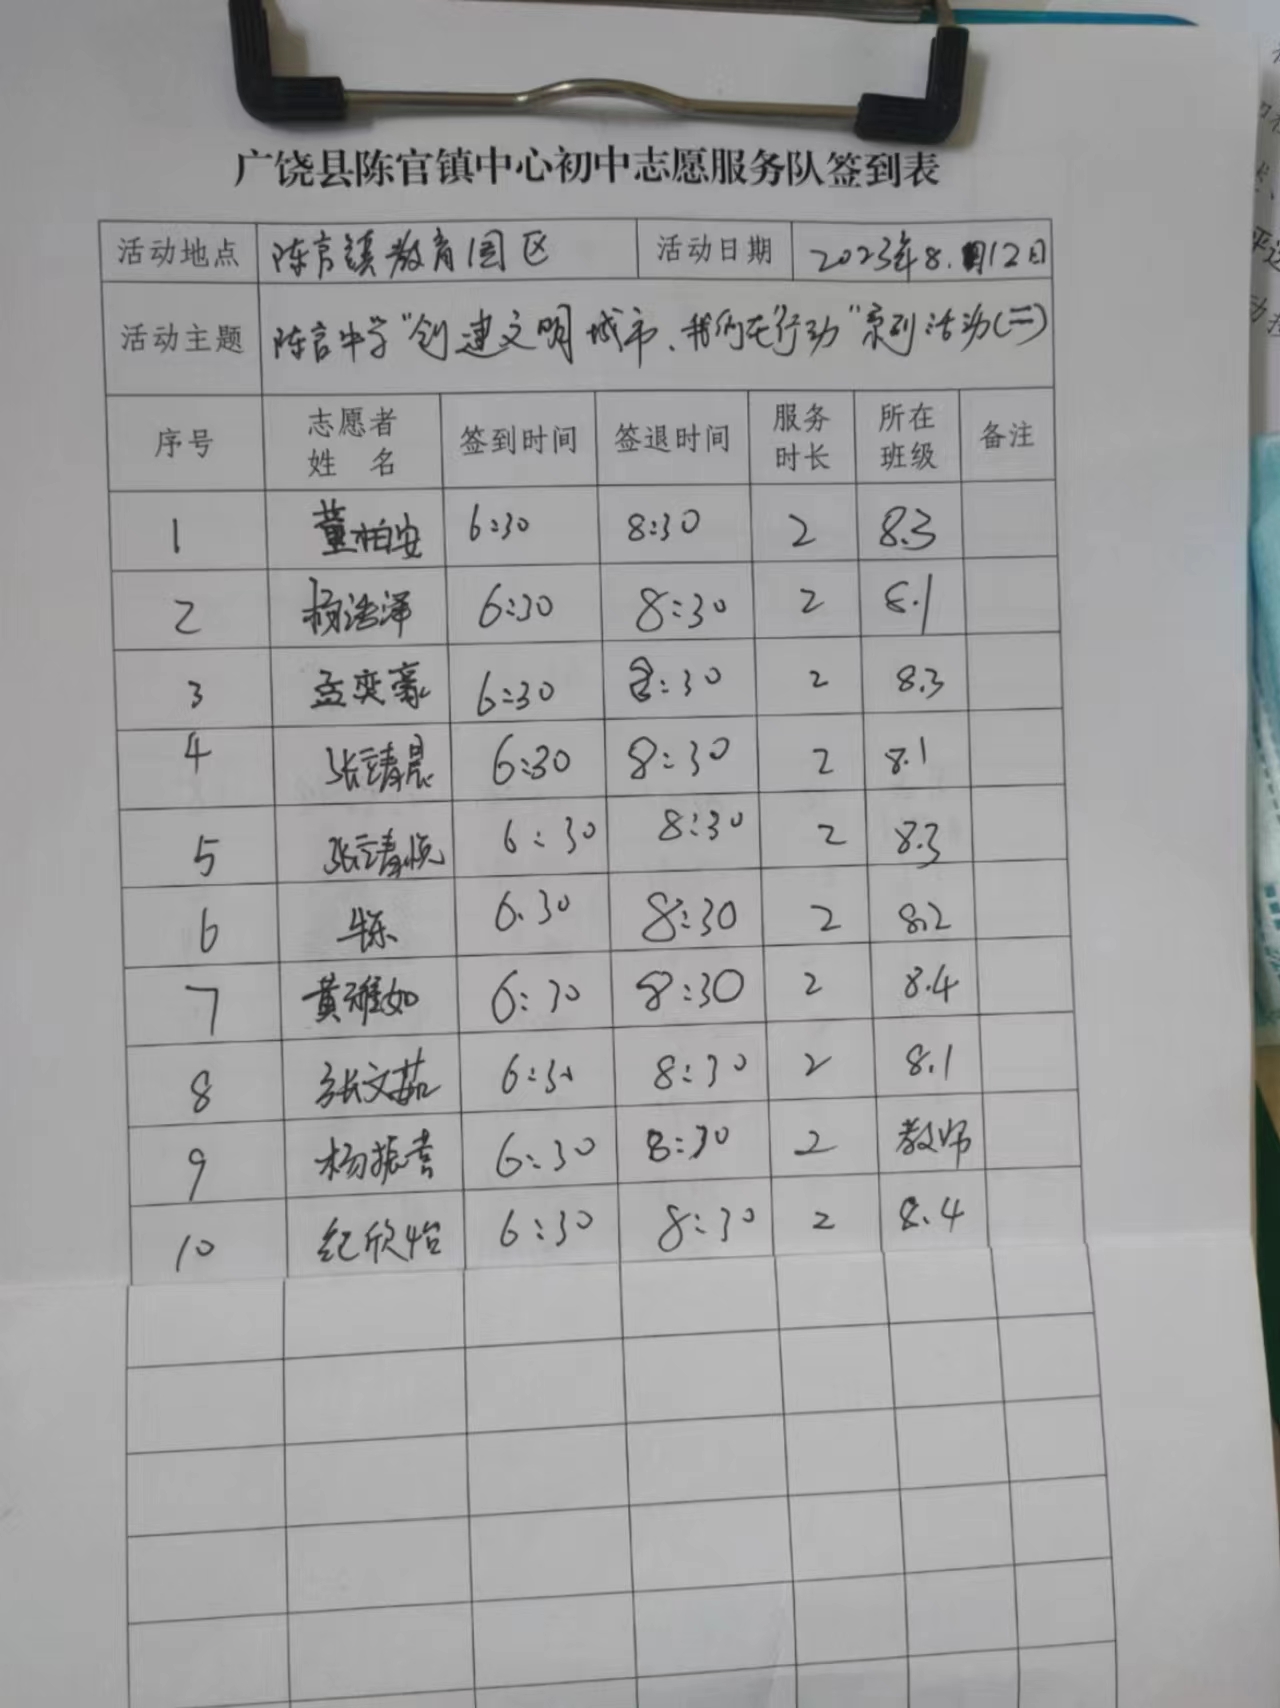 广饶县陈官镇中心初中志愿服务队签到表
活动地点 陈官镇教育园区 活动日期 2023年8.月12日
活动主题 陈官中学“创建文明城市、我们在行动”系列活动(二)
序号 志愿者姓名 签到时间 签退时间 服务时长 所在班级 备注
1 董柏安 6:30 8:30 2 8.3
2 杨浩泽 6:30 8:30 2 8.1
3 孟奕豪 6:30 8:30 2 8.3
4 张靖晨 6:30 8:30 2 8.1
5 张靖悦 6:30 8:30 2 8.3
6 牛乐 6.30 8:30 2 8.2
7 黄雅如 6:30 8:30 2 8.4
8 张文茹 6:30 8:30 2 8.1
9 杨振喜 6:30 8:30 2 教师
10 纪欣怡 6:30 8:30 2 8.4